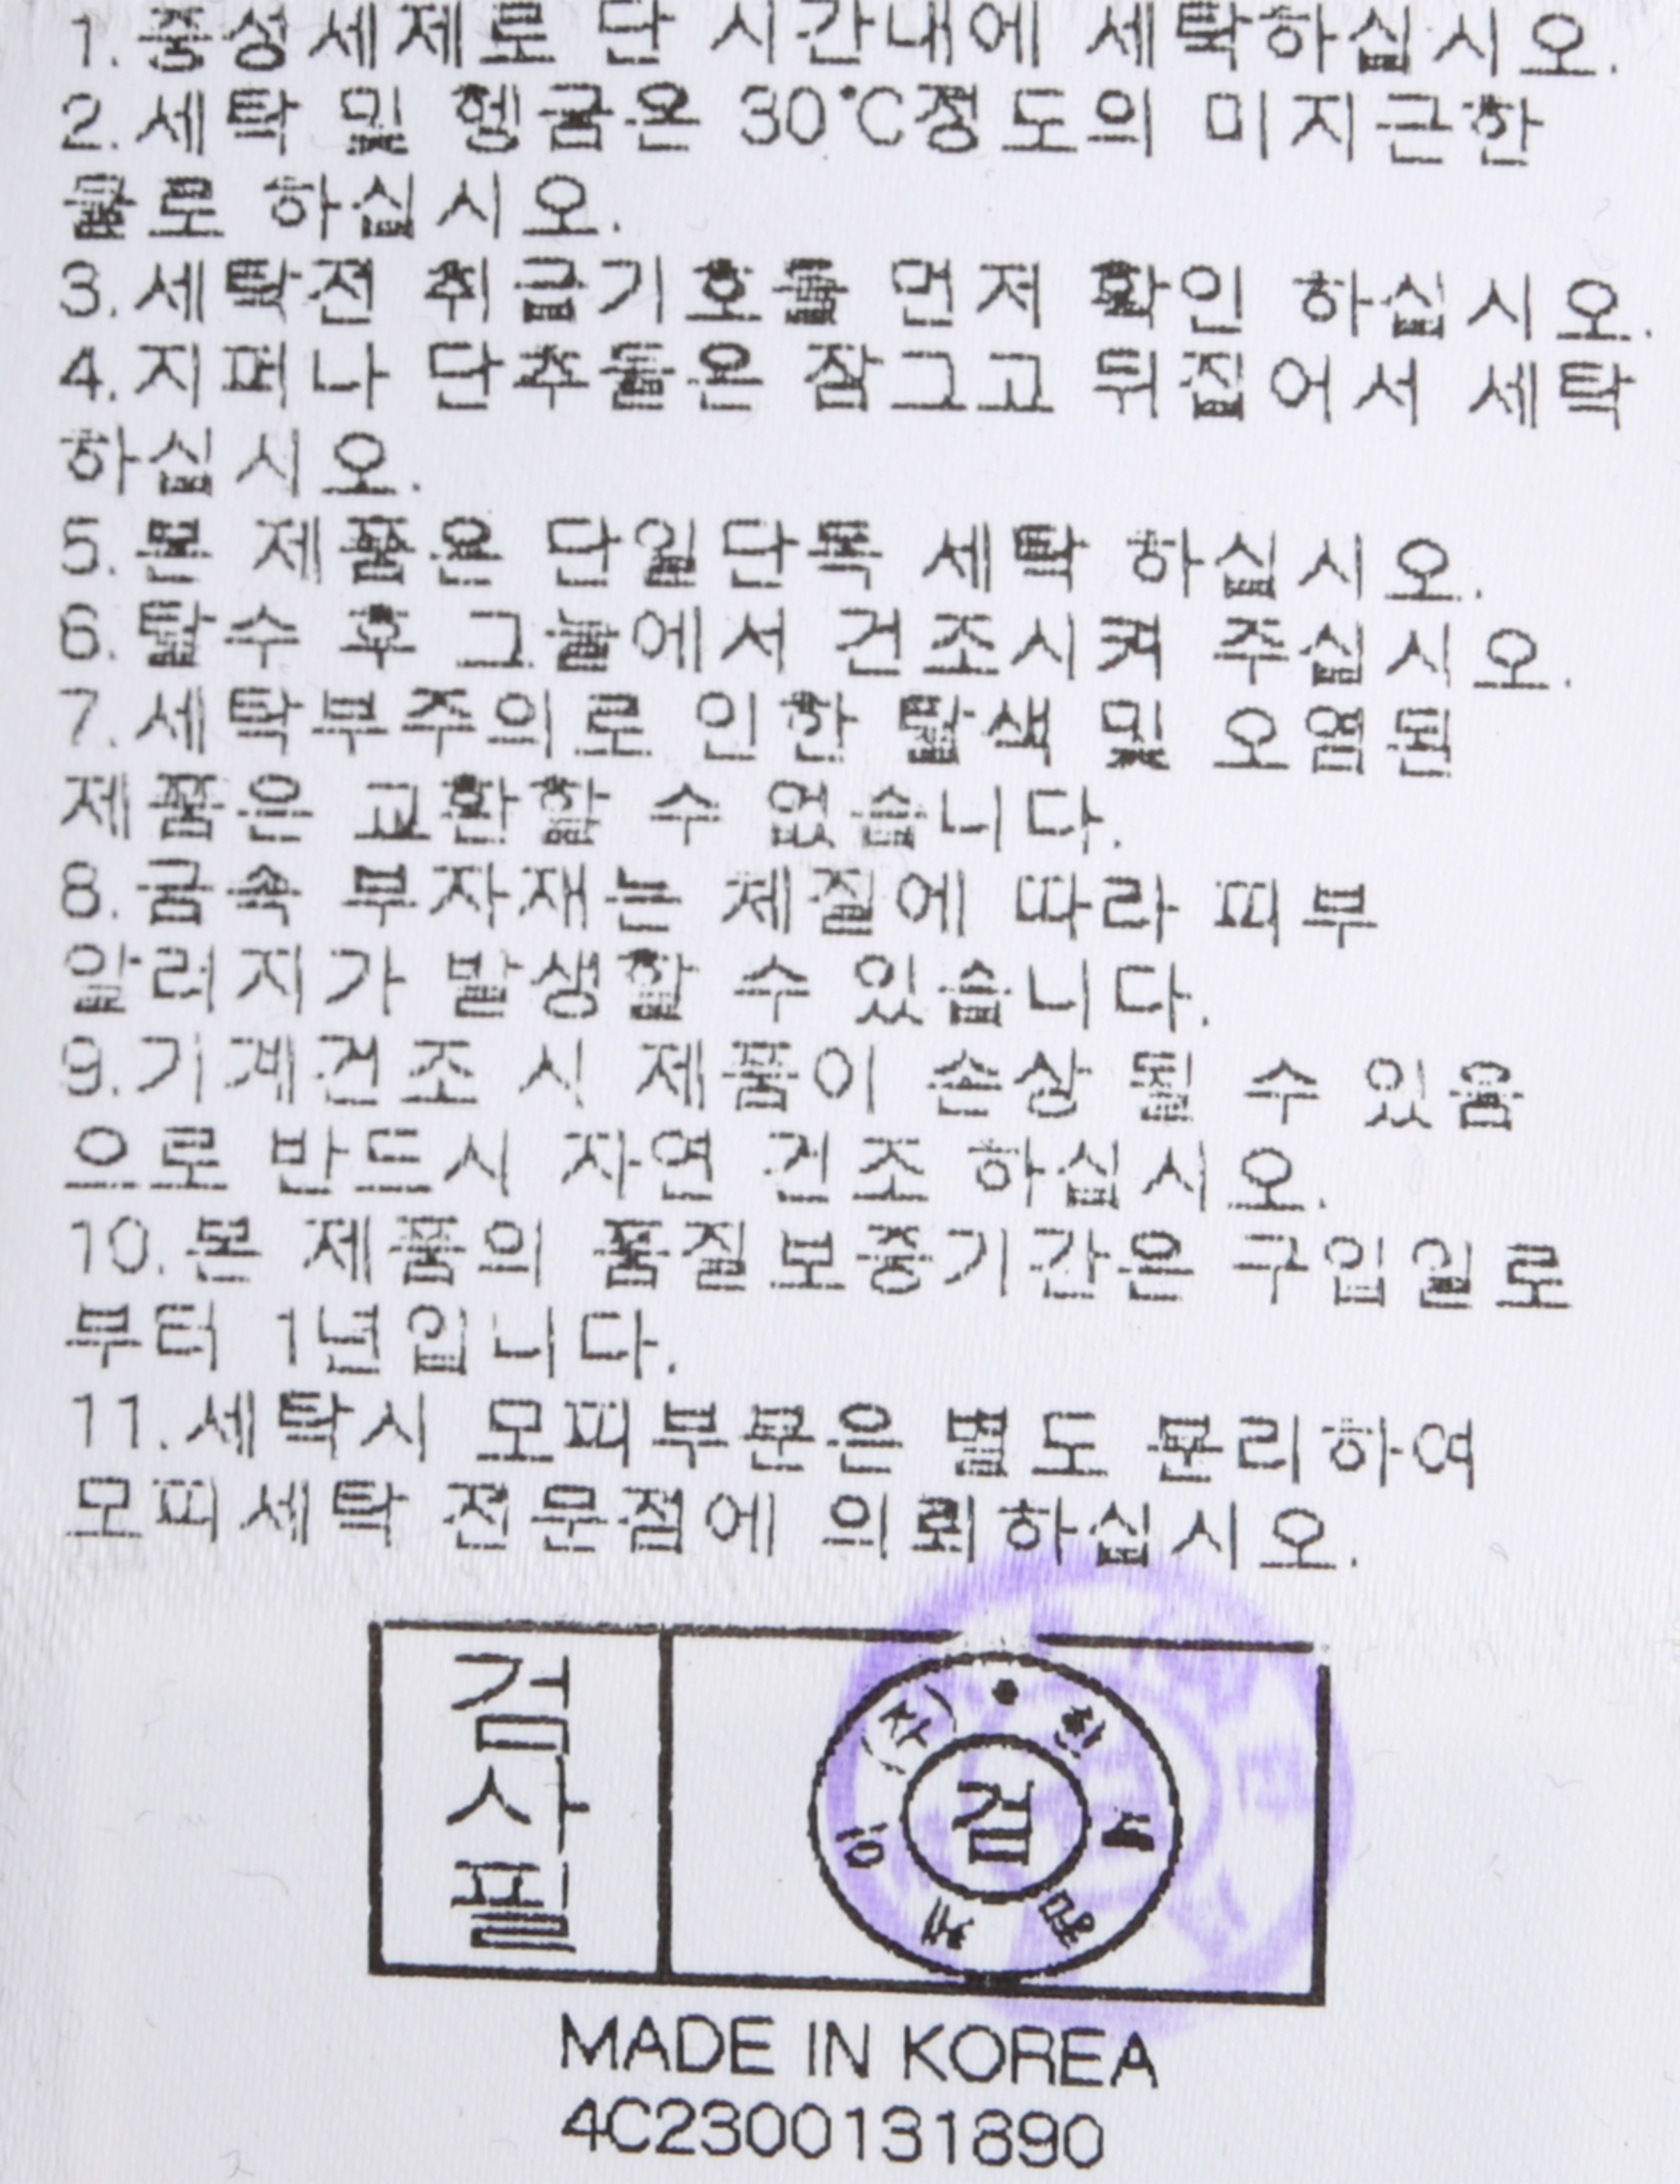 1.중성세제로 단 시간내에 세탁하십시오.
2.세탁 및 헹굼은 30°C정도의 미지근한
물로 하십시오.
3.세탁전 취급기호를 먼저 확인 하십시오.
4.지퍼나 단추들은 잠그고 뒤집어서 세탁
하십시오.
5.본 제품은 단일단독 세탁 하십시오.
6.탈수 후 그늘에서 건조시켜 주십시오.
7.세탁부주의로 인한 탈색 및 오염된
제품은 교환할 수 없습니다.
8.금속 부자재는 체질에 따라 피부
알러지가 발생할 수 있습니다.
9.기계건조 시 제품이 손상 될 수 있음
으로 반드시 자연 건조 하십시오.
10.본 제품의 품질보증기간은 구입일로
부터 1년입니다.
11.세탁시 모피부분은 별도 분리하여
모피세탁 전문점에 의뢰하십시오.
검
사
필
검
MADE IN KOREA
4C2300131890